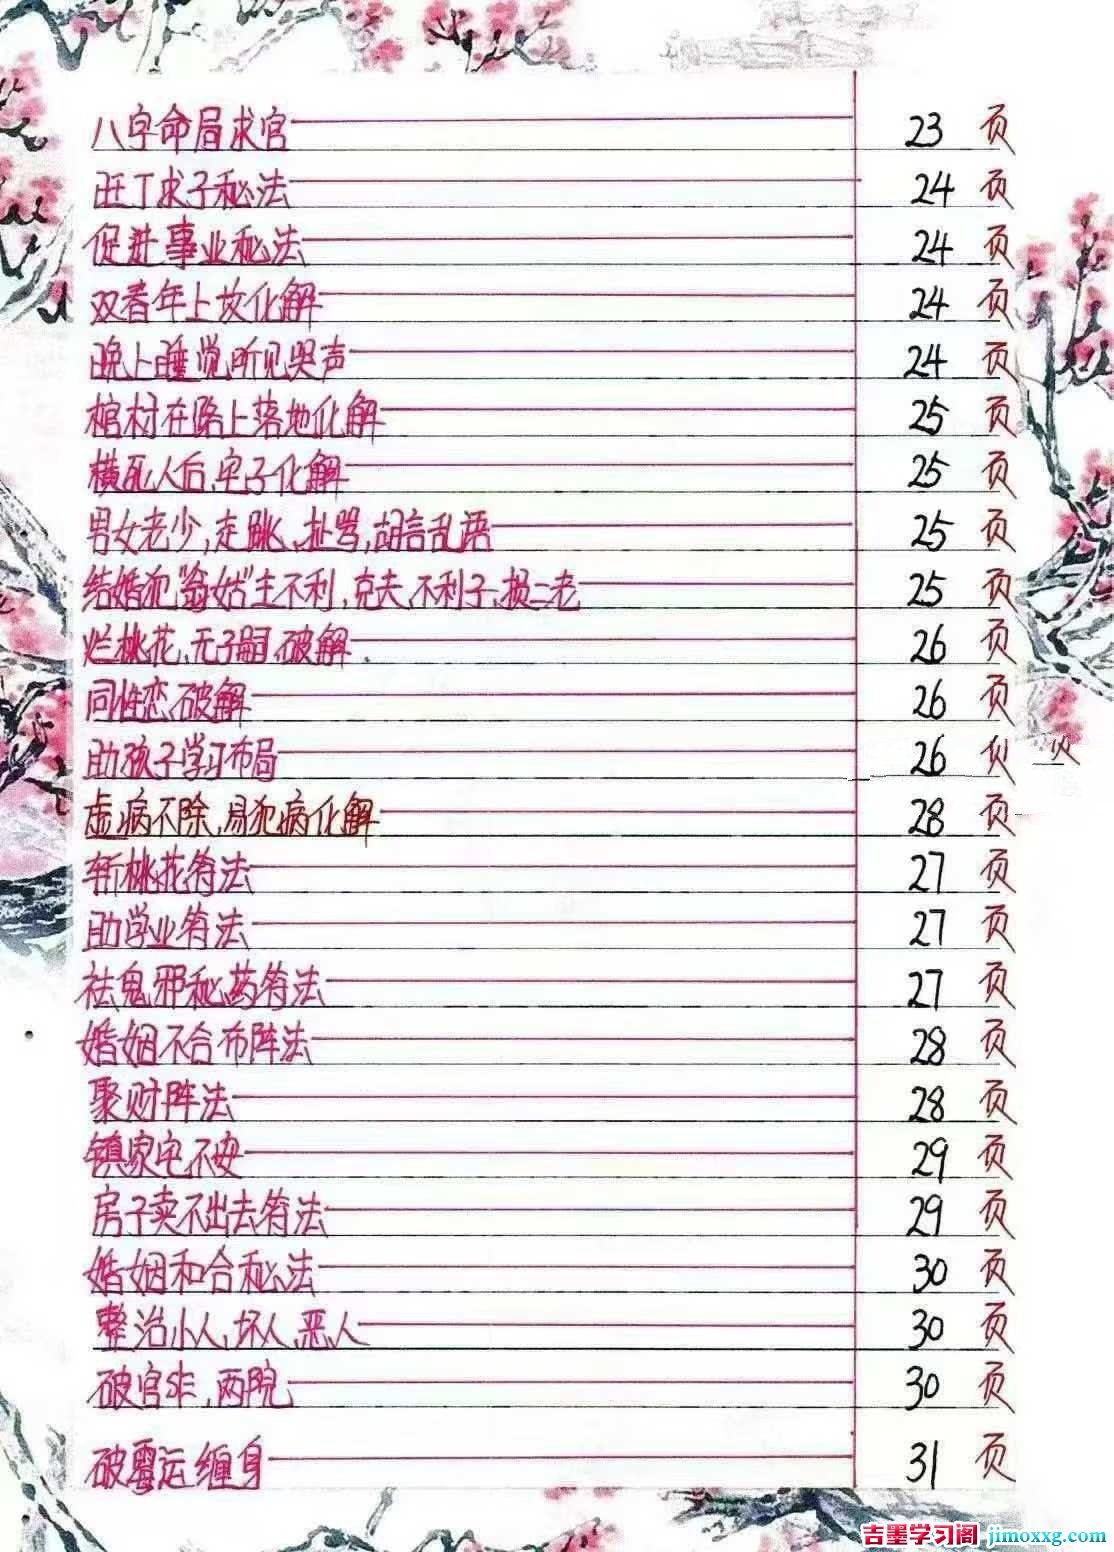 八字命局求官 23 页
旺丁求子秘法 24 页
促进事业秘法 24 页
双春年上坟化解 24 页
晚上睡觉听见哭声 24 页
棺材在路上落地化解 25 页
横死人后,宅子化解 25 页
男女老少,走跳、扯骂,胡言乱语 25 页
结婚犯"翁姑"主不利,克夫、不利子、损二老 25 页
烂桃花、无子嗣、破解 26 页
同性恋、破解 26 页
助孩子学习布局 26 页
虚病不除,易犯病化解 28 页
斩桃花符法 27 页
助学业符法 27 页
祛鬼邪秘药符法 27 页
婚姻不合布阵法 28 页
聚财阵法 28 页
镇家宅不安 29 页
房子卖不出去符法 29 页
婚姻和合秘法 30 页
整治小人、坏人、恶人 30 页
破官非,两院 30 页
破霉运缠身 31 页
吉墨学习阁 jimoxxg.com